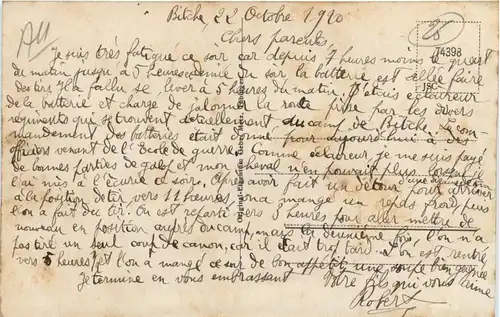 All
Bitche, 22 Octobre 1920
25
74398
Chers parents
Je suis très fatigué ce soir car depuis 7 heures moins le quart
du matin jusqu'à 5 heures et demie du soir la batterie est allée faire
des tirs. Il a fallu se lever à 5 heures du matin. J'étais éclaireur
de la batterie et chargé de jalonner la route prise par les divers
régiments qui se trouvent actuellement au camp de Bitche. Le com
mandement des batteries était donné pour aujourd'hui à des
officiers venant de l'École de guerre. Comme éclaireur je me suis payé
de bonnes parties de galop et mon cheval n'en pouvait plus lorsque je
l'ai mis à l'écurie ce soir. Après avoir fait un détour pour arriver
à la position de tir vers 11 heures, on a mangé un repas froid, puis
l'on a fait du tir. On est reparti vers 3 heures pour aller mettre de
nouveau en position auprès du camp, mais la deuxième fois, l'on n'a
pas tiré un seul coup de canon, car il était trop tard. L'on est rentré
vers 5 heures et l'on a mangé ce soir de bon appétit une soupe bien gagnée
Je termine en vous embrassant
Votre fils qui vous aime
Robert